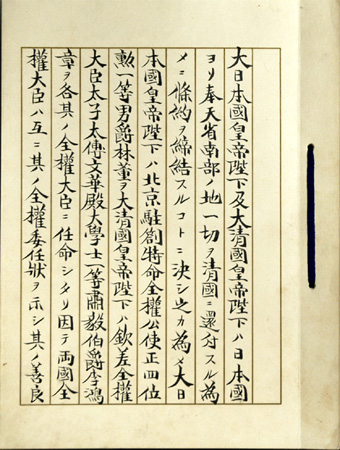 大日本國皇帝陛下及大清國皇帝陛下ハ日本國
ヨリ奉天省南部ノ地一切ヲ清國ニ還付スル爲
メニ條約ヲ締結スルコトニ決シ之カ為メ大日
本國皇帝陛下ハ北京駐劄特命全權公使正四位
勲一等男爵林董ヲ大清國皇帝陛下ハ欽差全權
大臣太子太傅文華殿大學士一等肅毅伯爵李鴻
章ヲ各其ノ全權大臣ニ任命シタリ因テ両國全
權大臣ハ互ニ其ノ全權委任狀ヲ示シ其ノ善良